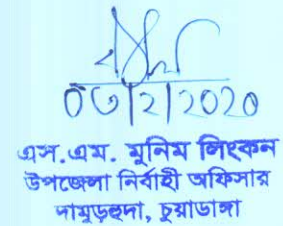 ০৩/২/2020
এস.এম. মুনিম লিংকন
উপজেলা নির্বাহী অফিসার
দামুড়হুদা, চুয়াডাঙ্গা